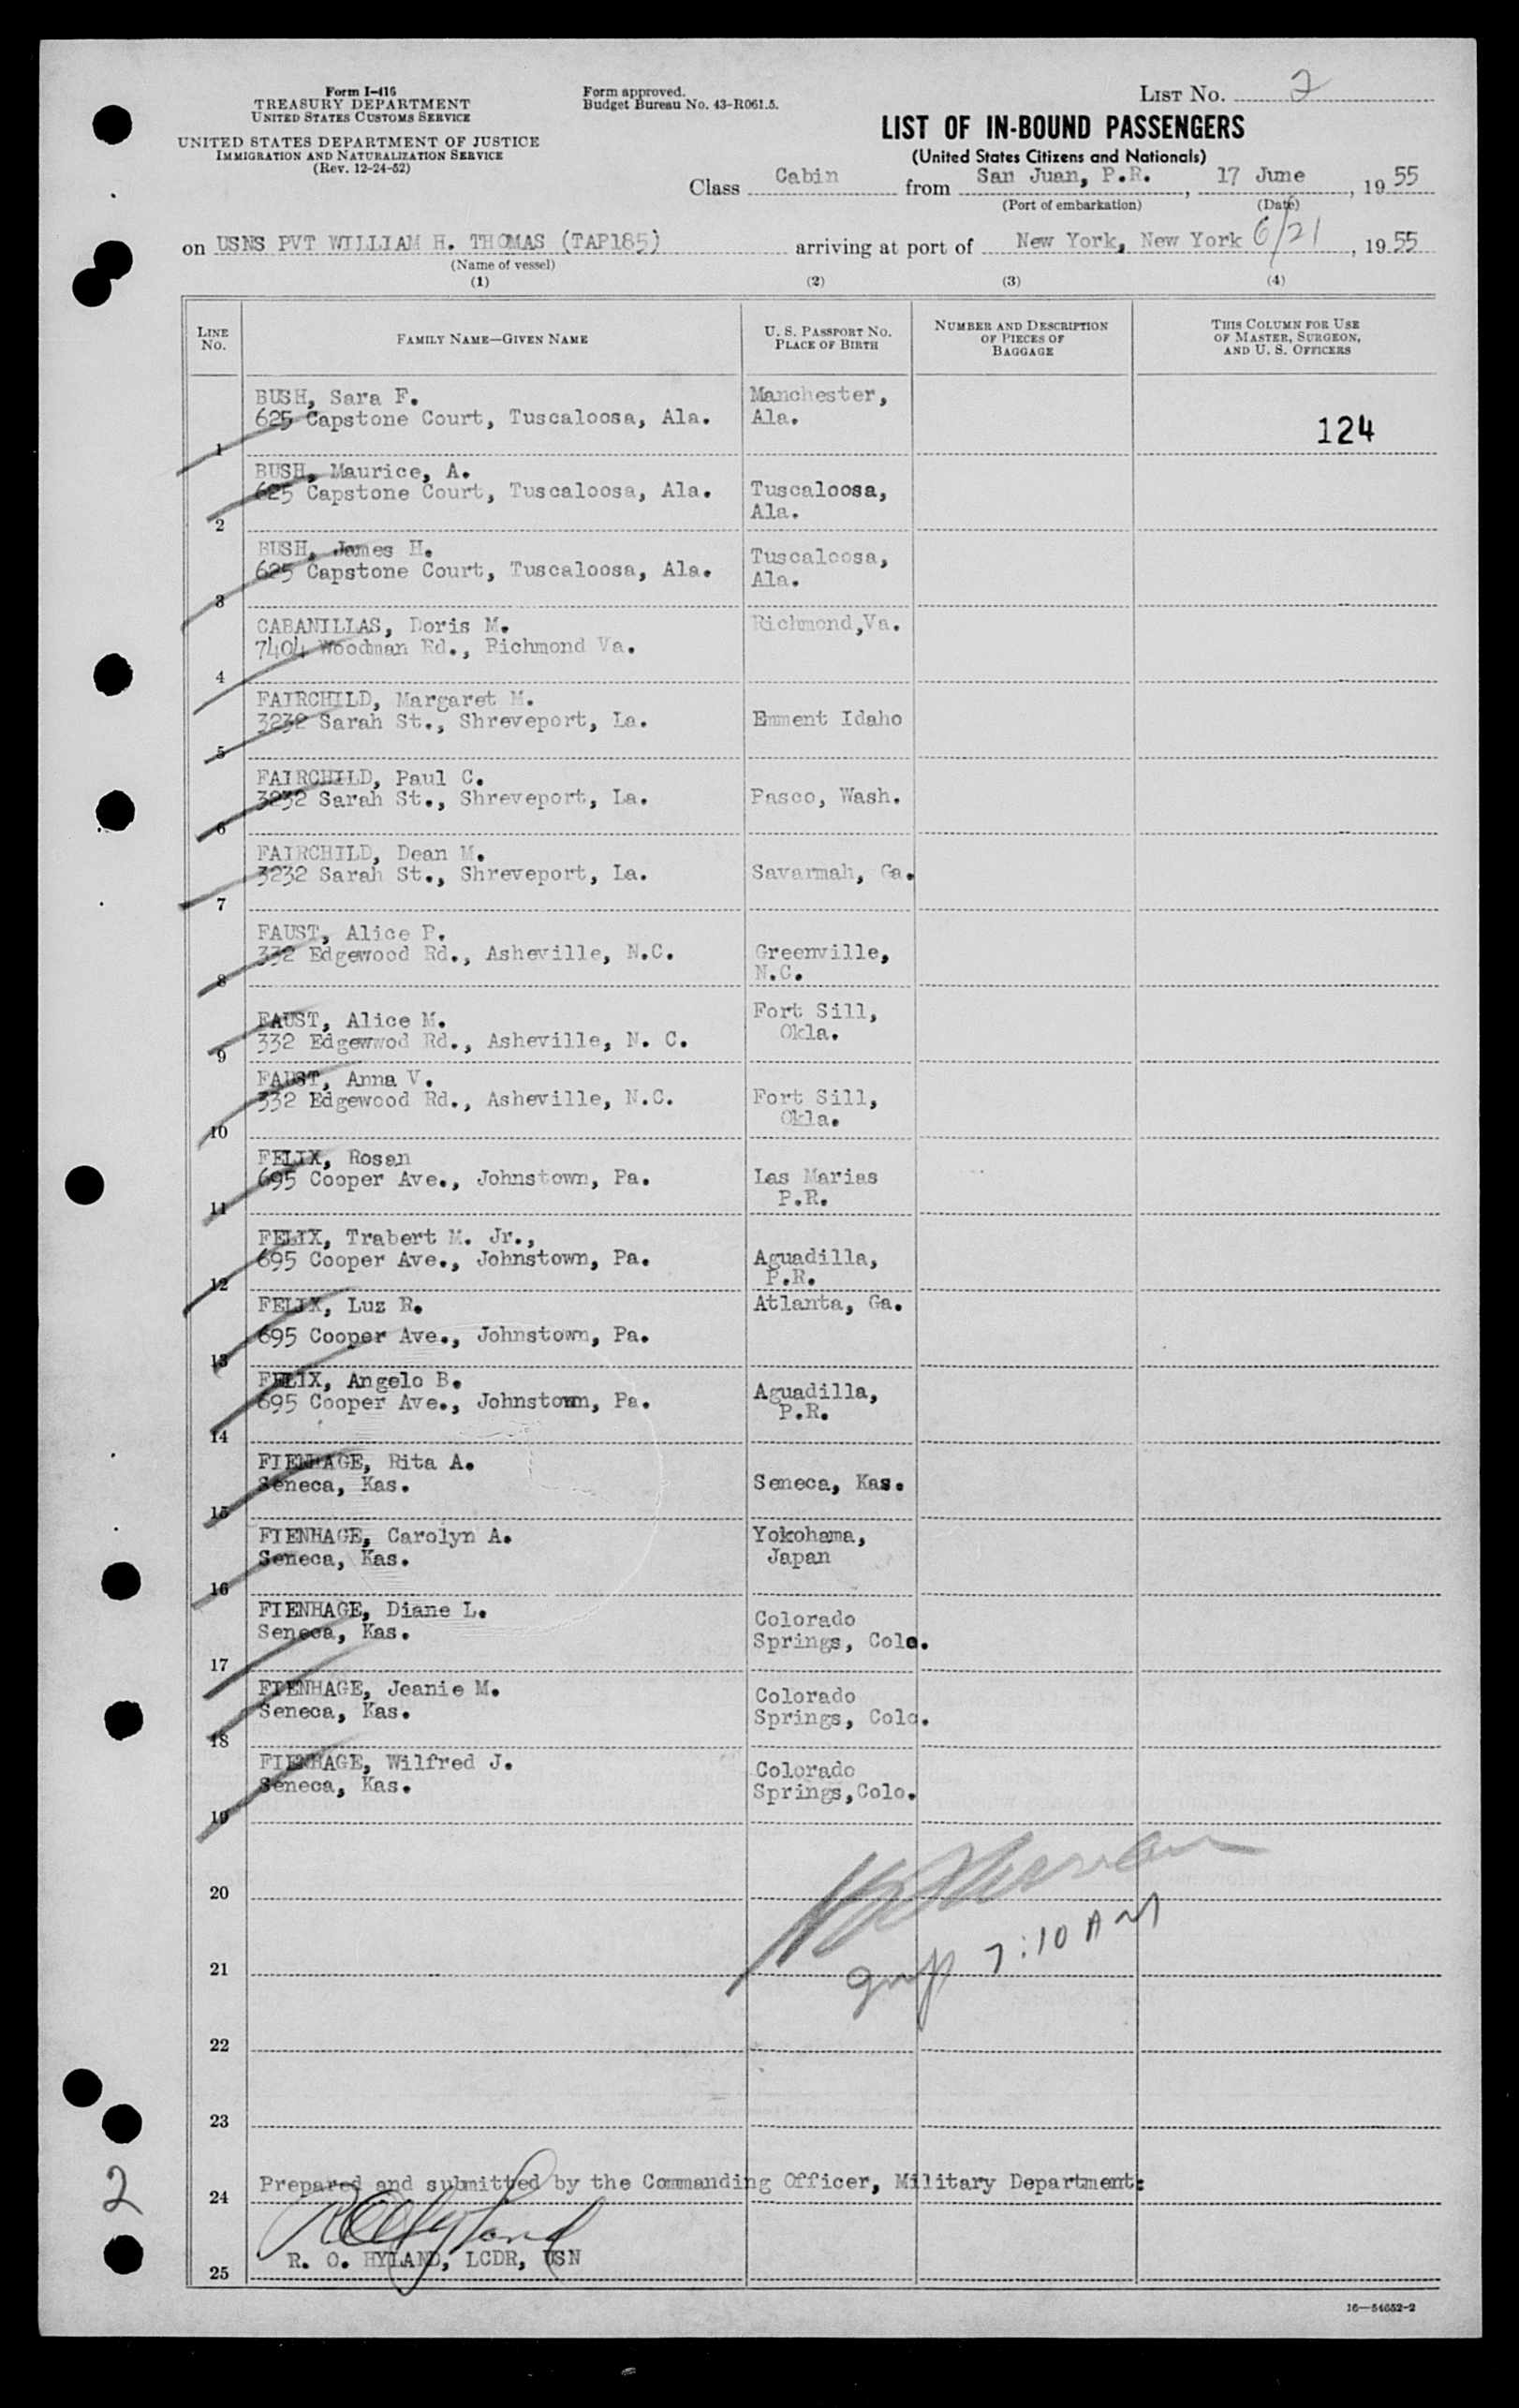 Form I-416
TREASURY DEPARTMENT
UNITED STATES CUSTOMS SERVICE
UNITED STATES DEPARTMENT OF JUSTICE
IMMIGRATION AND NATURALIZATION SERVICE
(Rev. 12-24-52)
Form approved.
Budget Bureau No. 43-R061.5.
LIST No. 2
LIST OF IN-BOUND PASSENGERS
(United States Citizens and Nationals)
Class Cabin from San Juan, P.R. , 17 June , 19 55
(Port of embarkation) (Date)
on USNS PVT WILLIAM H. THOMAS (TAP185) arriving at port of New York, New York 6/21 , 19 55
(Name of vessel)
(1) (2) (3) (4)
LINE No. FAMILY NAME—GIVEN NAME U. S. PASSPORT NO. PLACE OF BIRTH NUMBER AND DESCRIPTION OF PIECES OF BAGGAGE THIS COLUMN FOR USE OF MASTER, SURGEON, AND U. S. OFFICERS
BUSH, Sara F. Manchester,
625 Capstone Court, Tuscaloosa, Ala. Ala.
1 124
BUSH, Maurice, A.
625 Capstone Court, Tuscaloosa, Ala. Tuscaloosa,
2 Ala.
BUSH, James H. Tuscaloosa,
625 Capstone Court, Tuscaloosa, Ala. Ala.
3
CABANILLAS, Doris M. Richmond,Va.
7404 Woodman Rd., Richmond Va.
4
FAIRCHILD, Margaret M.
3232 Sarah St., Shreveport, La. Emment Idaho
5
FAIRCHILD, Paul C.
3232 Sarah St., Shreveport, La. Pasco, Wash.
6
FAIRCHILD, Dean M.
3232 Sarah St., Shreveport, La. Savarmah, Ga.
7
FAUST, Alice P.
332 Edgewood Rd., Asheville, N.C. Greenville,
8 N.C.
FAUST, Alice M. Fort Sill,
332 Edgewwod Rd., Asheville, N. C. Okla.
9
FAUST, Anna V.
332 Edgewood Rd., Asheville, N.C. Fort Sill,
10 Okla.
FELIX, Rosan
695 Cooper Ave., Johnstown, Pa. Las Marias
11 P.R.
FELIX, Trabert M. Jr.,
695 Cooper Ave., Johnstown, Pa. Aguadilla,
12 P.R.
FELIX, Luz R. Atlanta, Ga.
695 Cooper Ave., Johnstown, Pa.
13
FELIX, Angelo B. Aguadilla,
695 Cooper Ave., Johnstown, Pa. P.R.
14
FIENHAGE, Rita A.
Seneca, Kas. Seneca, Kas.
15
FIENHAGE, Carolyn A. Yokohama,
Seneca, Kas. Japan
16
FIENHAGE, Diane L. Colorado
Seneca, Kas. Springs, Colo.
17
FIENHAGE, Jeanie M. Colorado
Seneca, Kas. Springs, Colo.
18
FIENHAGE, Wilfred J. Colorado
Seneca, Kas. Springs,Colo.
19
20
7:10 AM
21
22
23
Prepared and submitted by the Commanding Officer, Military Department:
24
R. O. HYLAND, LCDR, USN
25
2
16—54652-2